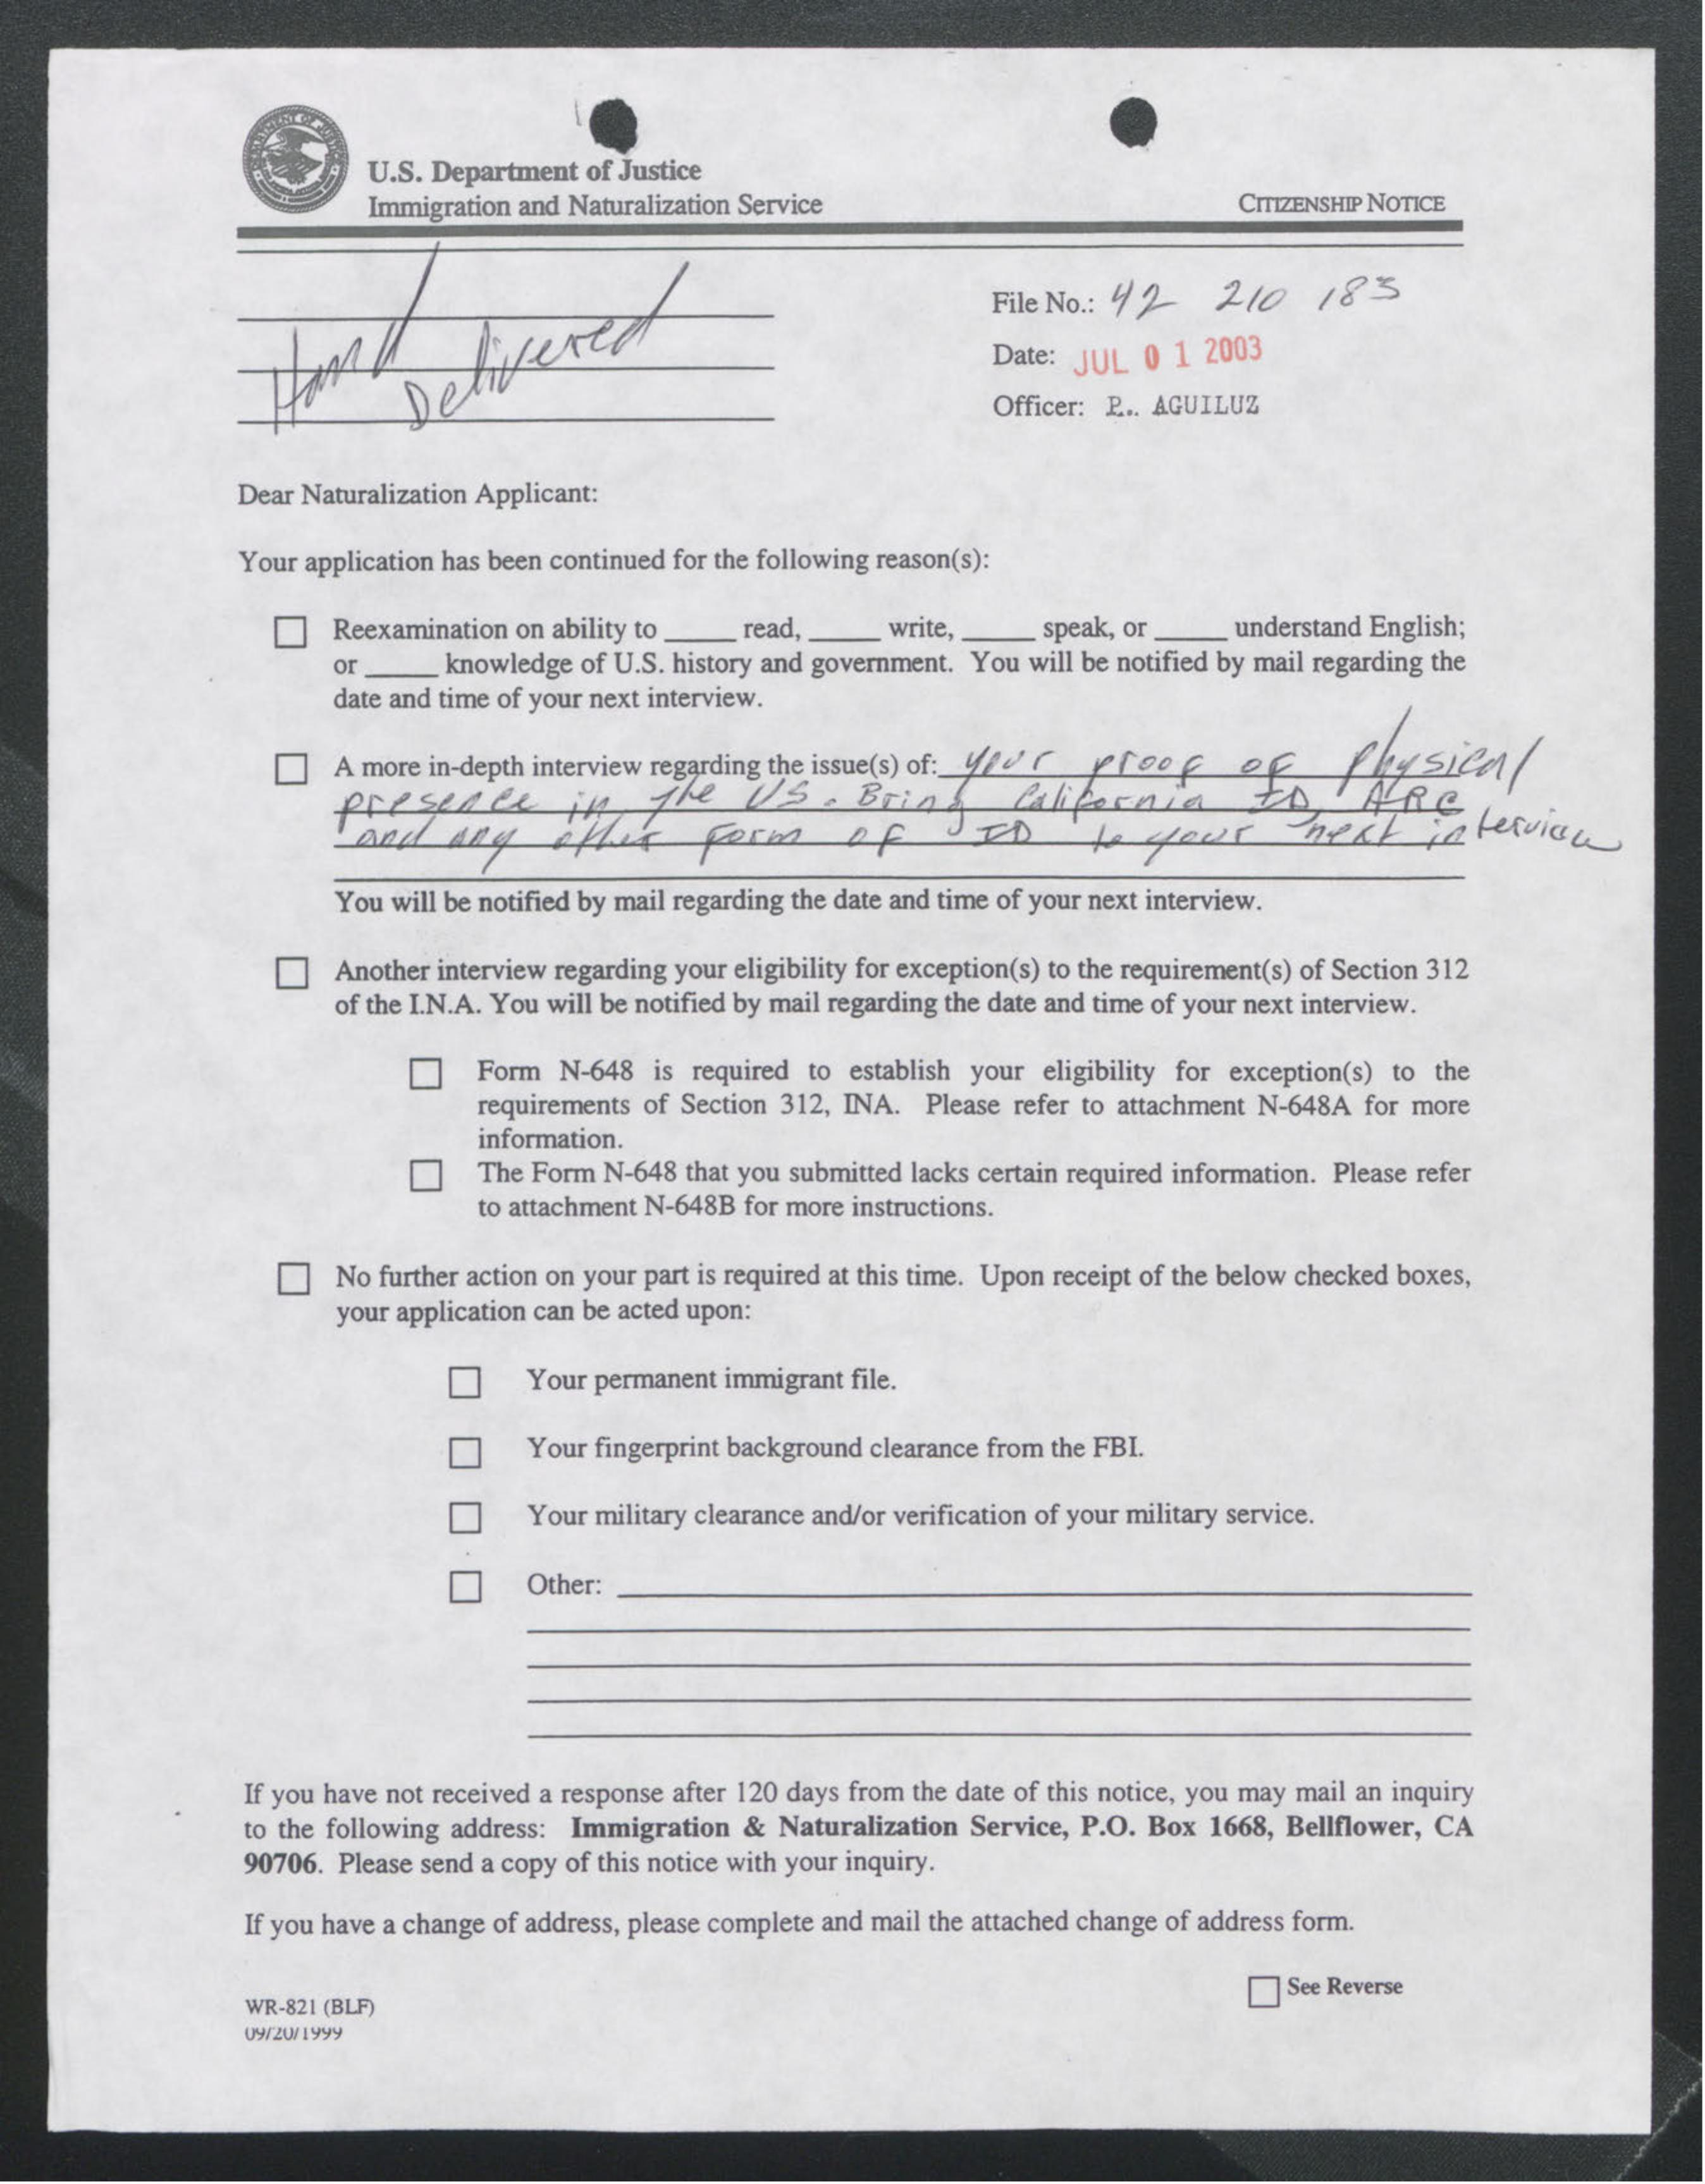 U.S. Department of Justice
Immigration and Naturalization Service
CITIZENSHIP NOTICE
Hand Delivered
File No.: 42 210 183
Date: JUL 01 2003
Officer: P.. AGUILUZ
Dear Naturalization Applicant:
Your application has been continued for the following reason(s):
Reexamination on ability to _____ read, _____ write, _____ speak, or _____ understand English;
or _____ knowledge of U.S. history and government. You will be notified by mail regarding the
date and time of your next interview.
A more in-depth interview regarding the issue(s) of: your proof of physical
presence in the US. Bring California ID, ARC
and any other form of ID to your next interview
You will be notified by mail regarding the date and time of your next interview.
Another interview regarding your eligibility for exception(s) to the requirement(s) of Section 312
of the I.N.A. You will be notified by mail regarding the date and time of your next interview.
Form N-648 is required to establish your eligibility for exception(s) to the
requirements of Section 312, INA. Please refer to attachment N-648A for more
information.
The Form N-648 that you submitted lacks certain required information. Please refer
to attachment N-648B for more instructions.
No further action on your part is required at this time. Upon receipt of the below checked boxes,
your application can be acted upon:
Your permanent immigrant file.
Your fingerprint background clearance from the FBI.
Your military clearance and/or verification of your military service.
Other:
If you have not received a response after 120 days from the date of this notice, you may mail an inquiry
to the following address: Immigration & Naturalization Service, P.O. Box 1668, Bellflower, CA
90706. Please send a copy of this notice with your inquiry.
If you have a change of address, please complete and mail the attached change of address form.
See Reverse
WR-821 (BLF)
09/20/1999